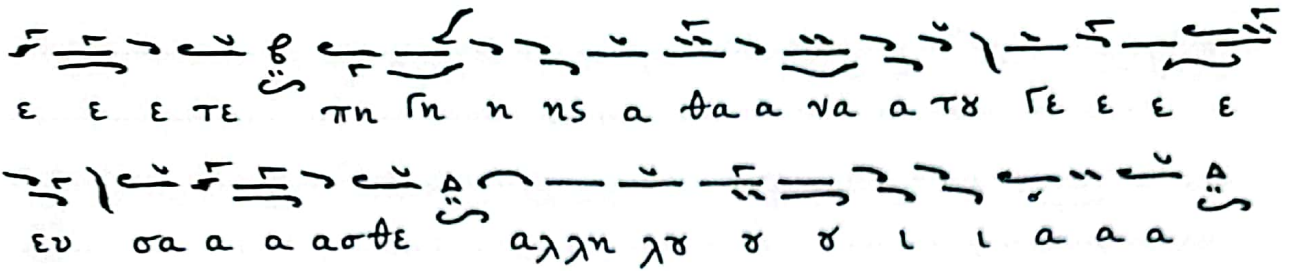 ε ε ε τε πη γη η ης α θα α να α τȣ γε ε ε ε
ευ σα α α ασθε αλλη λȣ ȣ ȣ ι ι α α α